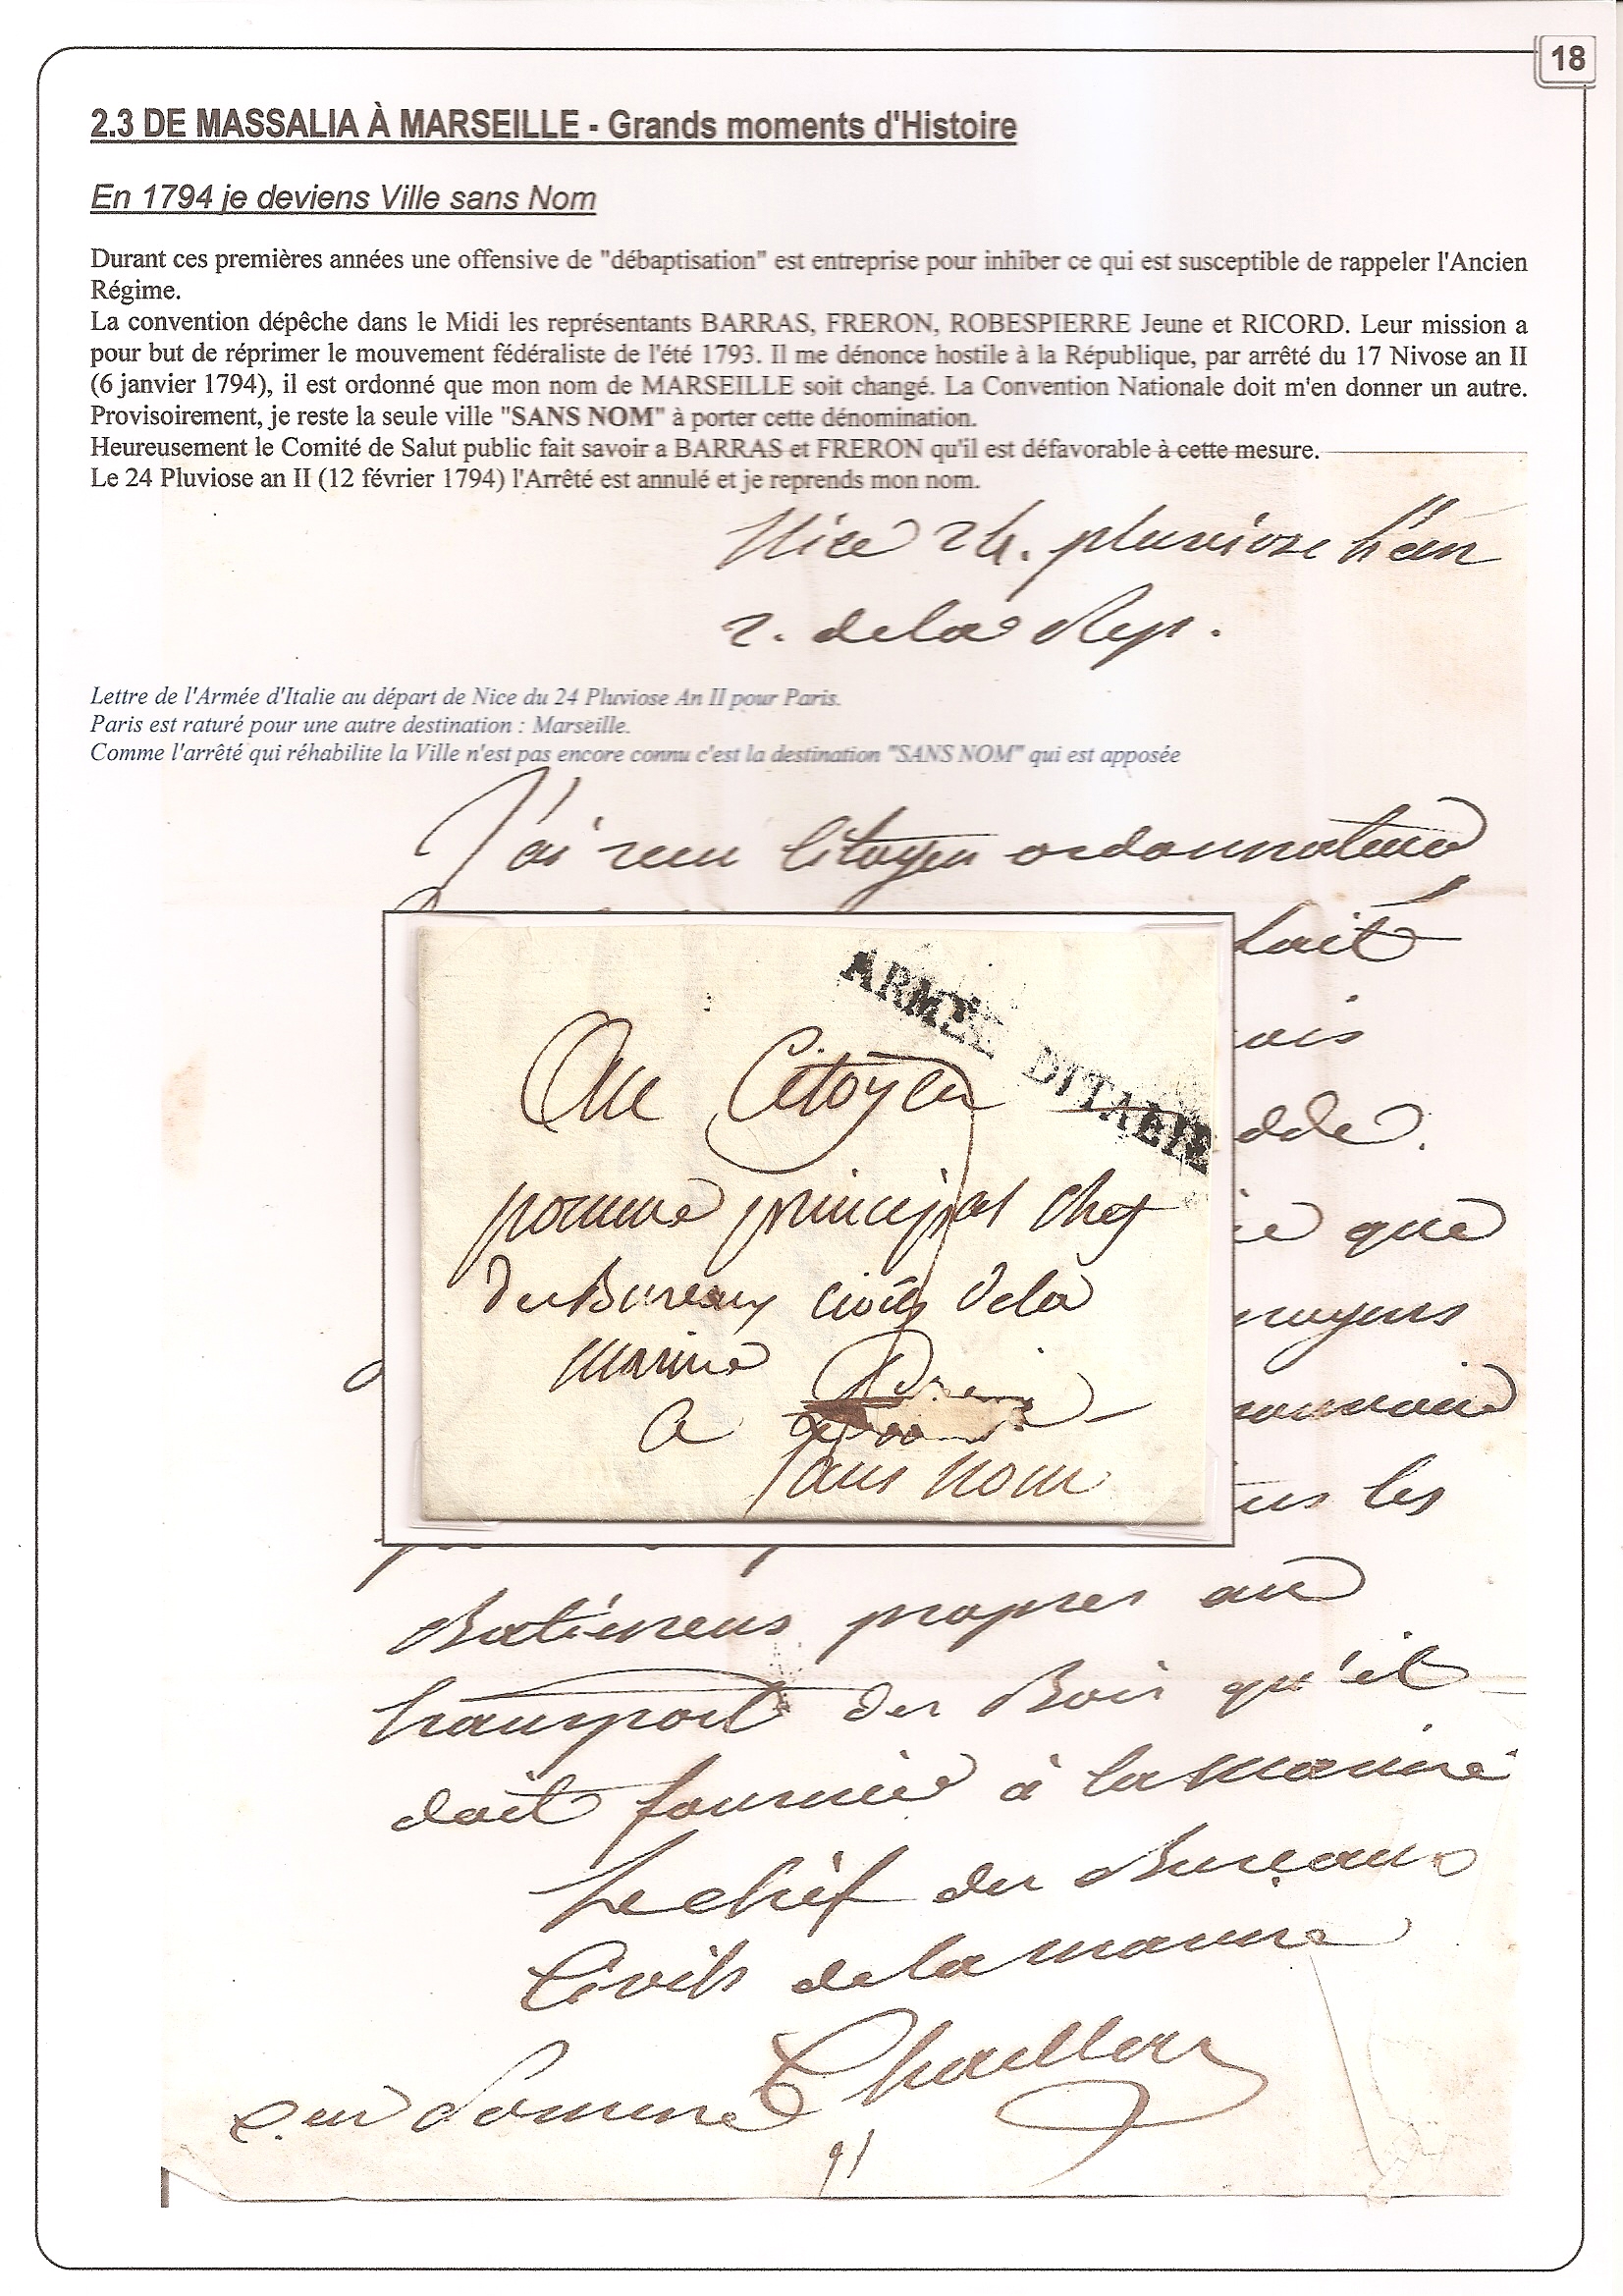 18
2.3 DE MASSALIA À MARSEILLE - Grands moments d'Histoire
En 1794 je deviens Ville sans Nom
Durant ces premières années une offensive de "débaptisation" est entreprise pour inhiber ce qui est susceptible de rappeler l'Ancien
Régime.
La convention dépêche dans le Midi les représentants BARRAS, FRERON, ROBESPIERRE Jeune et RICORD. Leur mission a
pour but de réprimer le mouvement fédéraliste de l'été 1793. Il me dénonce hostile à la République, par arrêté du 17 Nivose an II
(6 janvier 1794), il est ordonné que mon nom de MARSEILLE soit changé. La Convention Nationale doit m'en donner un autre.
Provisoirement, je reste la seule ville "SANS NOM" à porter cette dénomination.
Heureusement le Comité de Salut public fait savoir a BARRAS et FRERON qu'il est défavorable à cette mesure.
Le 24 Pluviose an II (12 février 1794) l'Arrêté est annulé et je reprends mon nom.
Nice 24. pluviose l'an
2. de la Rep.
Lettre de l'Armée d'Italie au départ de Nice du 24 Pluviose An II pour Paris.
Paris est raturé pour une autre destination : Marseille.
Comme l'arrêté qui réhabilite la Ville n'est pas encore connu c'est la destination "SANS NOM" qui est apposée
J'ai recu Citoyen ordonnateur
ARMÉE D'ITALIE
Au Citoyen
pomme principal chef
des Bureaux civils de la
marine
a
sans nom
lait
ois
que
moyens
les
Batimens propres au
transport des Bois qu'il
doit fournir à la marine
Le chef des Bureaux
Civils de la marine
pomme
91